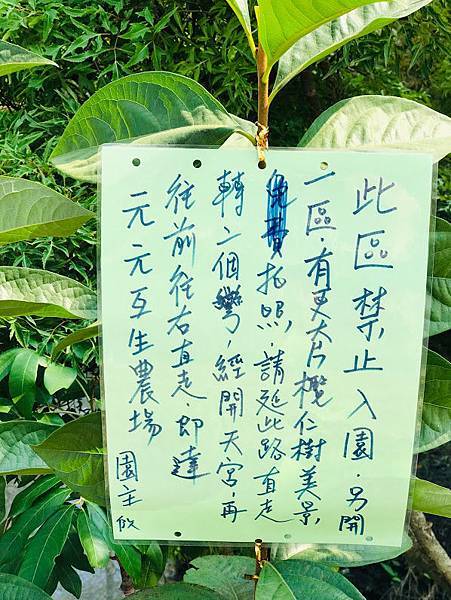 此區禁止入園.另開
一區.有更大片欖仁樹美景,
免費拍照,.請延此路直走
轉二個彎,經開天宮,再
往前往右直走即達
元元互生農場
園主啟